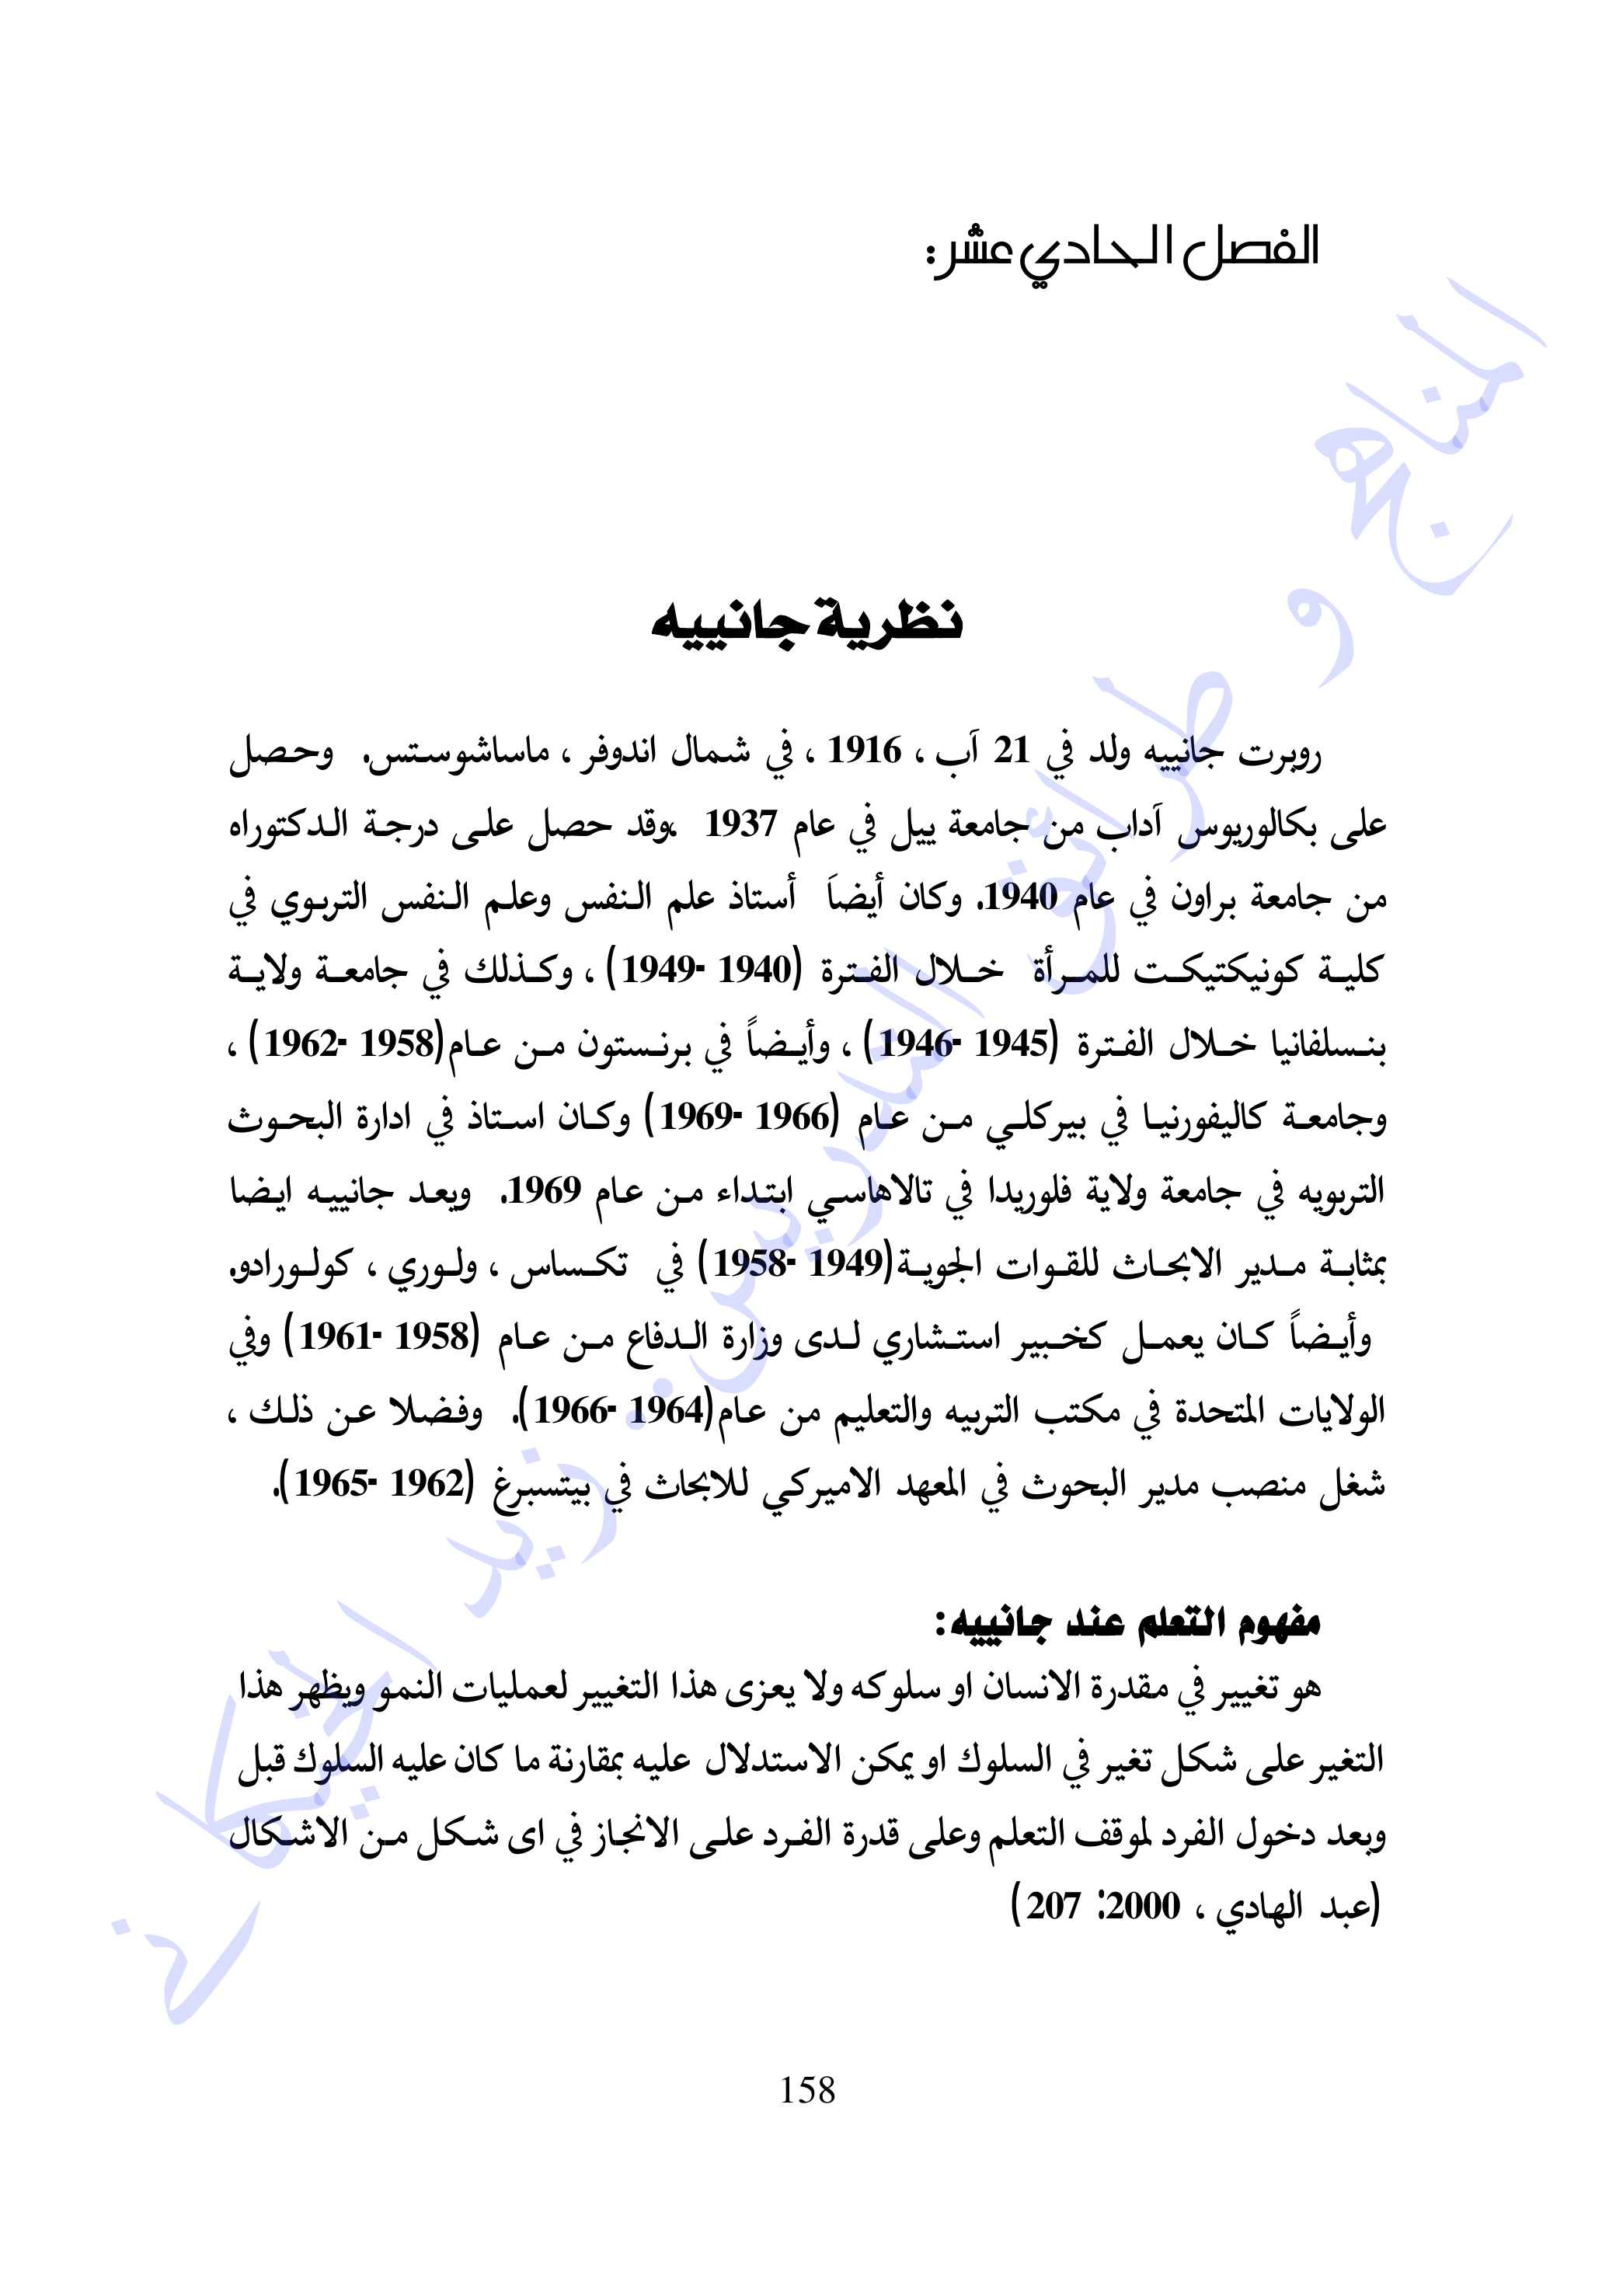 الفصل الحادي عشر:
نظرية جانييه
روبرت جانييه ولد في 21 آب ، 1916 ، في شمال اندوفر ، ماساشوستس. وحصل
على بكالوريوس آداب من جامعة ييل في عام 1937 ،وقد حصل على درجة الدكتوراه
من جامعة براون في عام 1940. وكان أيضاَ أستاذ علم النفس وعلم النفس التربوي في
كلية كونيكتيكت للمرأة خلال الفترة (1940 -1949) ، وكذلك في جامعة ولاية
بنسلفانيا خلال الفترة (1945 -1946) ، وأيضاً في برنستون من عام(1958 -1962) ،
وجامعة كاليفورنيا في بيركلي من عام (1966 -1969) وكان استاذ في ادارة البحوث
التربويه في جامعة ولاية فلوريدا في تالاهاسي ابتداء من عام 1969. ويعد جانييه ايضا
بمثابة مدير الابحاث للقوات الجوية(1949 -1958) في تكساس ، ولوري ، كولورادو.
وأيضاً كان يعمل كخبير استشاري لدى وزارة الدفاع من عام (1958 -1961) وفي
الولايات المتحدة في مكتب التربيه والتعليم من عام(1964 -1966). وفضلا عن ذلك ،
شغل منصب مدير البحوث في المعهد الاميركي للابحاث في بيتسبرغ (1962 -1965).
مفهوم التعلم عند جانييه:
هو تغيير في مقدرة الانسان او سلوكه ولا يعزى هذا التغيير لعمليات النمو ويظهر هذا
التغير على شكل تغير في السلوك او يمكن الاستدلال عليه بمقارنة ما كان عليه السلوك قبل
وبعد دخول الفرد لموقف التعلم وعلى قدرة الفرد على الانجاز في اى شكل من الاشكال
(عبد الهادي ، 2000: 207)
المناهج و طرائق التدريس: زيد الخيكاني
158